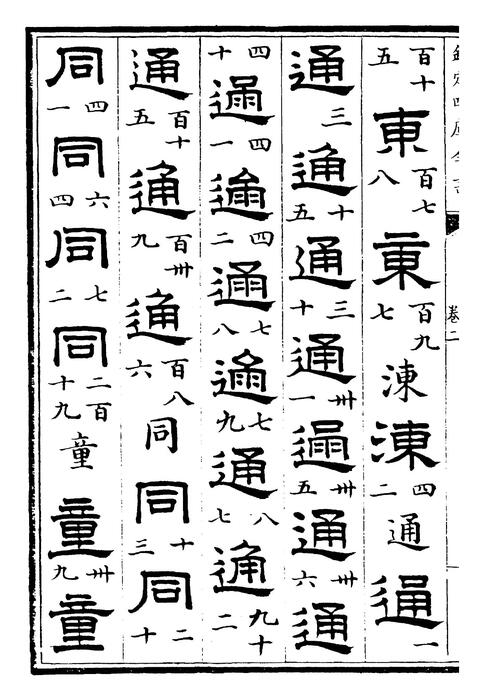 欽定四庫全書 卷二
百十五 東 百七八 東 百九七 涷 涷 四二 通 通 一
通 三 通 十五 通 三十 通 卅一 通 卅五 通 卅六 通
四十 通 四一 通 四二 通 七八 通 七九 通 八七 通 九十二
通 百十五 通 百卅九 通 百八六 同 同 十三 同 二十
同 四一 同 六四 同 七二 同 二百十九 童 童 卅九 童